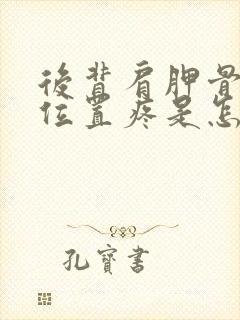 後背肩胛骨
位置疼是怎
孔寶書